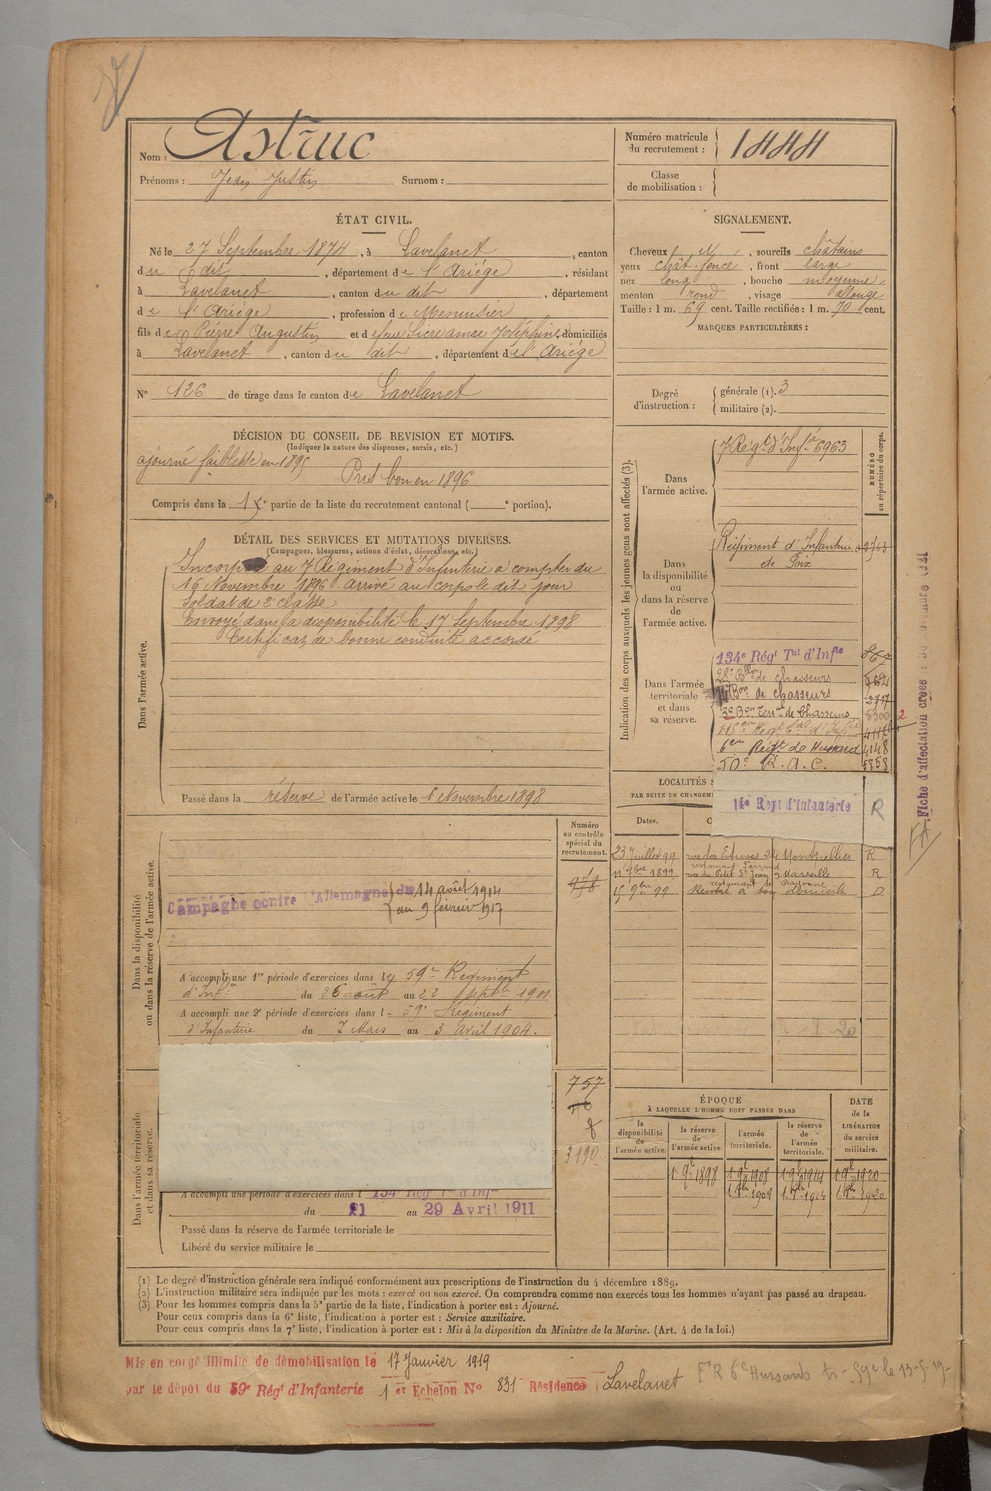 Nom : Astruc
Prénoms : Jean Justin Surnom :
Numéro matricule du recrutement : 1444
Classe de mobilisation :
ÉTAT CIVIL.
Né le 27 Septembre 1874, à Lavelanet, canton
du dit, département de l'Ariège, résidant
à Lavelanet, canton du dit, département
de l'Ariège, profession de Menuisier
fils de Pierre Augustin et de Joséphine, domiciliés
à Lavelanet, canton du dit, département de l'Ariège
N° 126 de tirage dans le canton de Lavelanet
SIGNALEMENT.
Cheveux N, sourcils châtains
yeux chât. foncé, front large
nez long, bouche moyenne
menton rond, visage allongé
Taille : 1 m. 69 cent. Taille rectifiée : 1 m. 70 cent.
MARQUES PARTICULIÈRES :
Degré d'instruction : générale (1). 3
militaire (2).
DÉCISION DU CONSEIL DE REVISION ET MOTIFS.
(Indiquer la nature des dispenses, sursis, etc.)
ajourné faiblesse en 1895
Pris bon en 1896
Compris dans la 1re partie de la liste du recrutement cantonal ( e portion).
DÉTAIL DES SERVICES ET MUTATIONS DIVERSES.
(Campagnes, blessures, actions d'éclat, décorations, etc.)
Dans l'armée active.
au 7 Régiment d'Infanterie à compter du
16 Novembre 1896 arrivé au corps le dit jour
Soldat de 2e classe
Envoyé dans la disponibilité le 17 Septembre 1898
Certificat de bonne conduite accordé
Passé dans la réserve de l'armée active le 1 Novembre 1898
Indication des corps auxquels les jeunes gens sont affectés (3).
NUMÉRO au répertoire du corps.
Dans l'armée active.
7 Régt d'Infie 6963
Dans la disponibilité ou dans la réserve de l'armée active.
Régiment d'Infanterie
de Foix
Dans l'armée territoriale et dans sa réserve.
134e Régt Tal d'Infie
28e Bon de chasseurs
Bon de chasseurs
3e Bon Terr. de Chasseurs
6e Régt de Hussard 4148
50e R.A.C. 5858
14e Regt d'Infanterie R
Fiche d'affectation créée
LOCALITÉS
PAR SUITE DE CHANGEM
Dates.
23 Juillet 99 rue des Etuves 24 Montpellier R
restaurant
11 9bre 1899 rue du Petit St Jean 3 Marseille R
15 9bre 99 Rentré à son domicile D
Numéro au contrôle spécial du recrutement.
976
Dans la disponibilité ou dans la réserve de l'armée active.
Campagne contre l'Allemagne du 14 août 1914
au 9 février 1917
A accompli une 1re période d'exercices dans le 59e Régiment
d'Infie du 26 août au 22 septbre 1901
A accompli une 2e période d'exercices dans l 59e Régiment
d'Infanterie du 7 Mars au 3 Avril 1904.
Dans l'armée territoriale et dans sa réserve.
757
3190
A accompli une période d'exercices dans l 134e Régt Tal d'Infie
du 21 au 29 Avril 1911
Passé dans la réserve de l'armée territoriale le
Libéré du service militaire le
ÉPOQUE
À LAQUELLE L'HOMME DOIT PASSER DANS
DATE de la LIBÉRATION du service militaire.
la disponibilité de l'armée active.
la réserve de l'armée active.
l'armée territoriale.
la réserve de l'armée territoriale.
1 9bre 1898 1 9bre 1908 1 9bre 1914 1 9bre 1920
(1) Le degré d'instruction générale sera indiqué conformément aux prescriptions de l'instruction du 4 décembre 1889.
(2) L'instruction militaire sera indiquée par les mots : exercé ou non exercé. On comprendra comme non exercés tous les hommes n'ayant pas passé au drapeau.
(3) Pour les hommes compris dans la 5e partie de la liste, l'indication à porter est : Ajourné.
Pour ceux compris dans la 6e liste, l'indication à porter est : Service auxiliaire.
Pour ceux compris dans la 7e liste, l'indication à porter est : Mis à la disposition du Ministre de la Marine. (Art. 4 de la loi.)
Mis en congé illimité de démobilisation le 17 Janvier 1919
par le dépôt du 59e Régt d'Infanterie 1er Echelon N° 831 Résidence : Lavelanet
6e Hussards